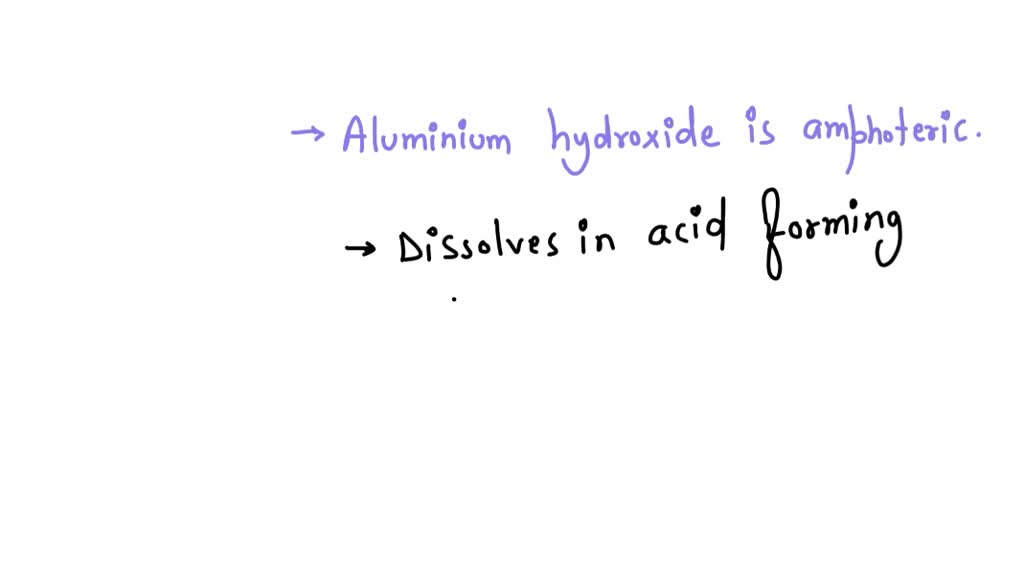 → Aluminium hydroxide is amphoteric.
→ Dissolves in acid forming